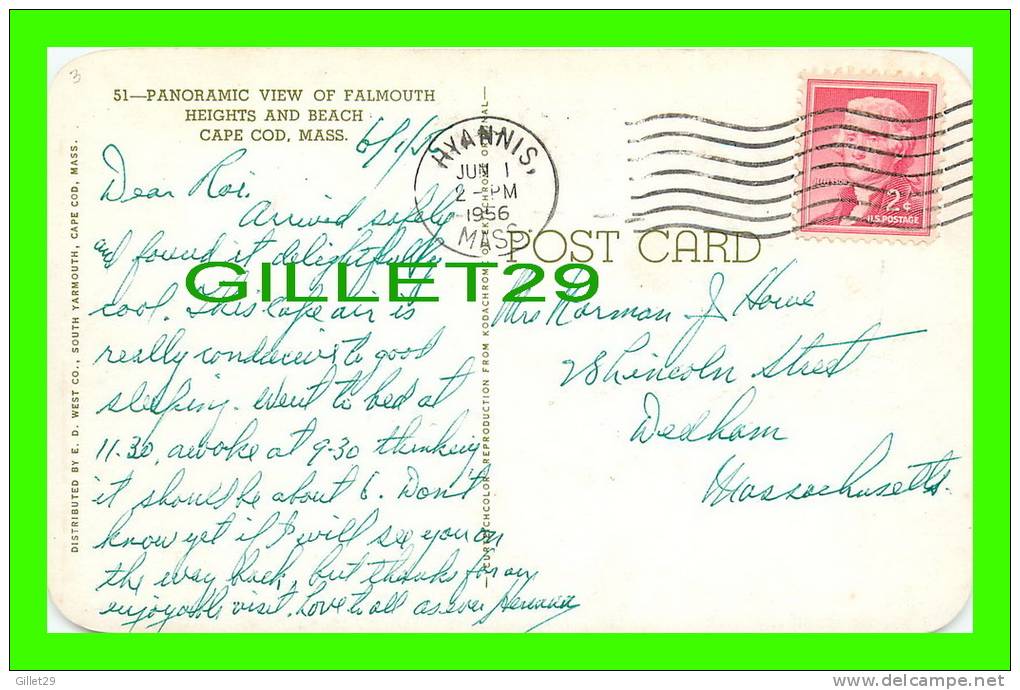 3
51—PANORAMIC VIEW OF FALMOUTH
HEIGHTS AND BEACH
CAPE COD, MASS.
6/1/56
HYANNIS,
JUN 1
2-PM
1956
MASS
2¢
U.S. POSTAGE
POST CARD
Dear Roi.
Arrived safely
and found it delightfully
cool. This Cape air is
really conducive to good
sleeping. Went to bed at
11-30, awoke at 9-30 thinking
it should be about 6. Don't
know yet if I will see you on
the way back, but thanks for an
enjoyable visit. Love to all as ever
Mrs Norman J Howe
28 Lincoln Street
Dedham
Massachusetts.
DISTRIBUTED BY E. D. WEST CO., SOUTH YARMOUTH, CAPE COD, MASS.
—CURTEICHCOLOR REPRODUCTION FROM KODACHROME OR EKTACHROME ORIGINAL—
GILLET29
Gillet29
http://www.delcampe.net